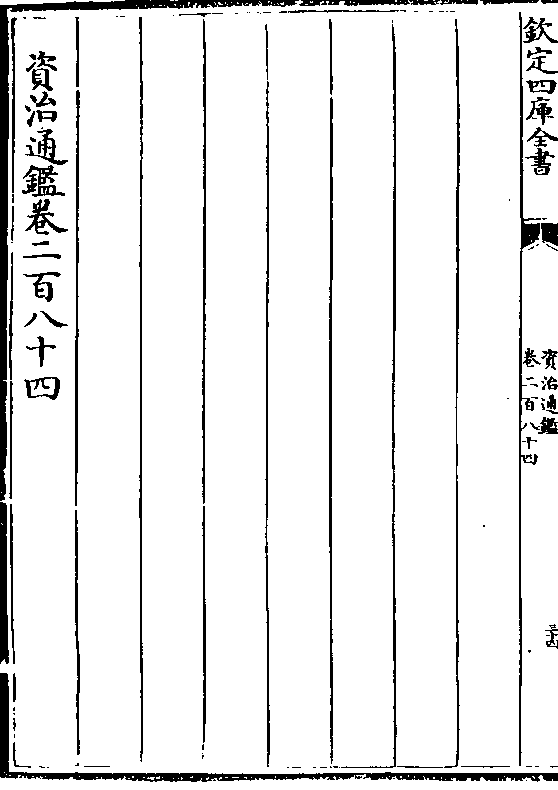 欽定四庫全書
資治通鑑
卷二百八十四
三十四
資治通鑑卷二百八十四